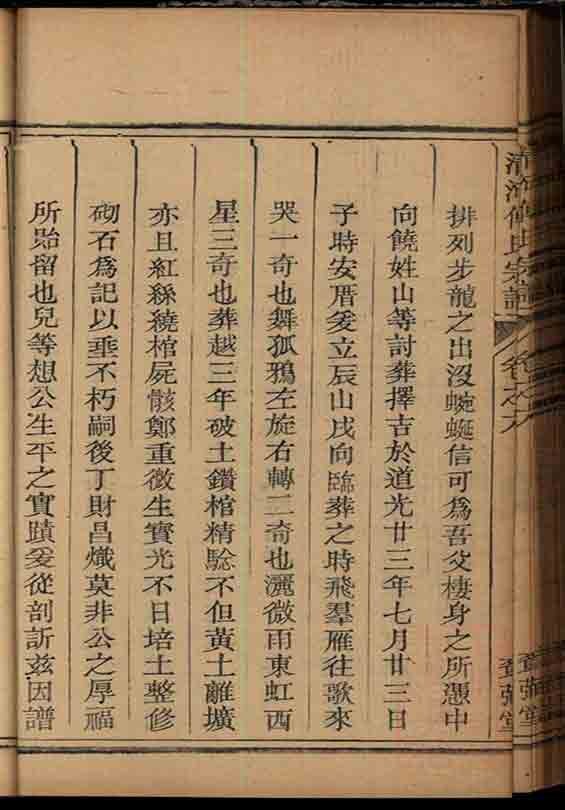 氏宗譜
卷之六
登彌堂
排列步龍之出沒蜿蜒信可為吾父棲身之所憑中
向饒姓山等討葬擇吉於道光廿三年七月廿三日
子時安厝爰立辰山戌向臨葬之時飛羣雁往歌來
哭一奇也舞孤鴉左旋右轉二奇也灑微雨東虹西
星三奇也葬越三年破土鑽棺精騐不但黃土離壙
亦且紅絲繞棺屍骸鄭重微生寶光不日培土整修
砌石為記以垂不朽嗣後丁財昌熾莫非公之厚福
所貽留也兒等想公生平之實蹟爰從剖訢茲因譜